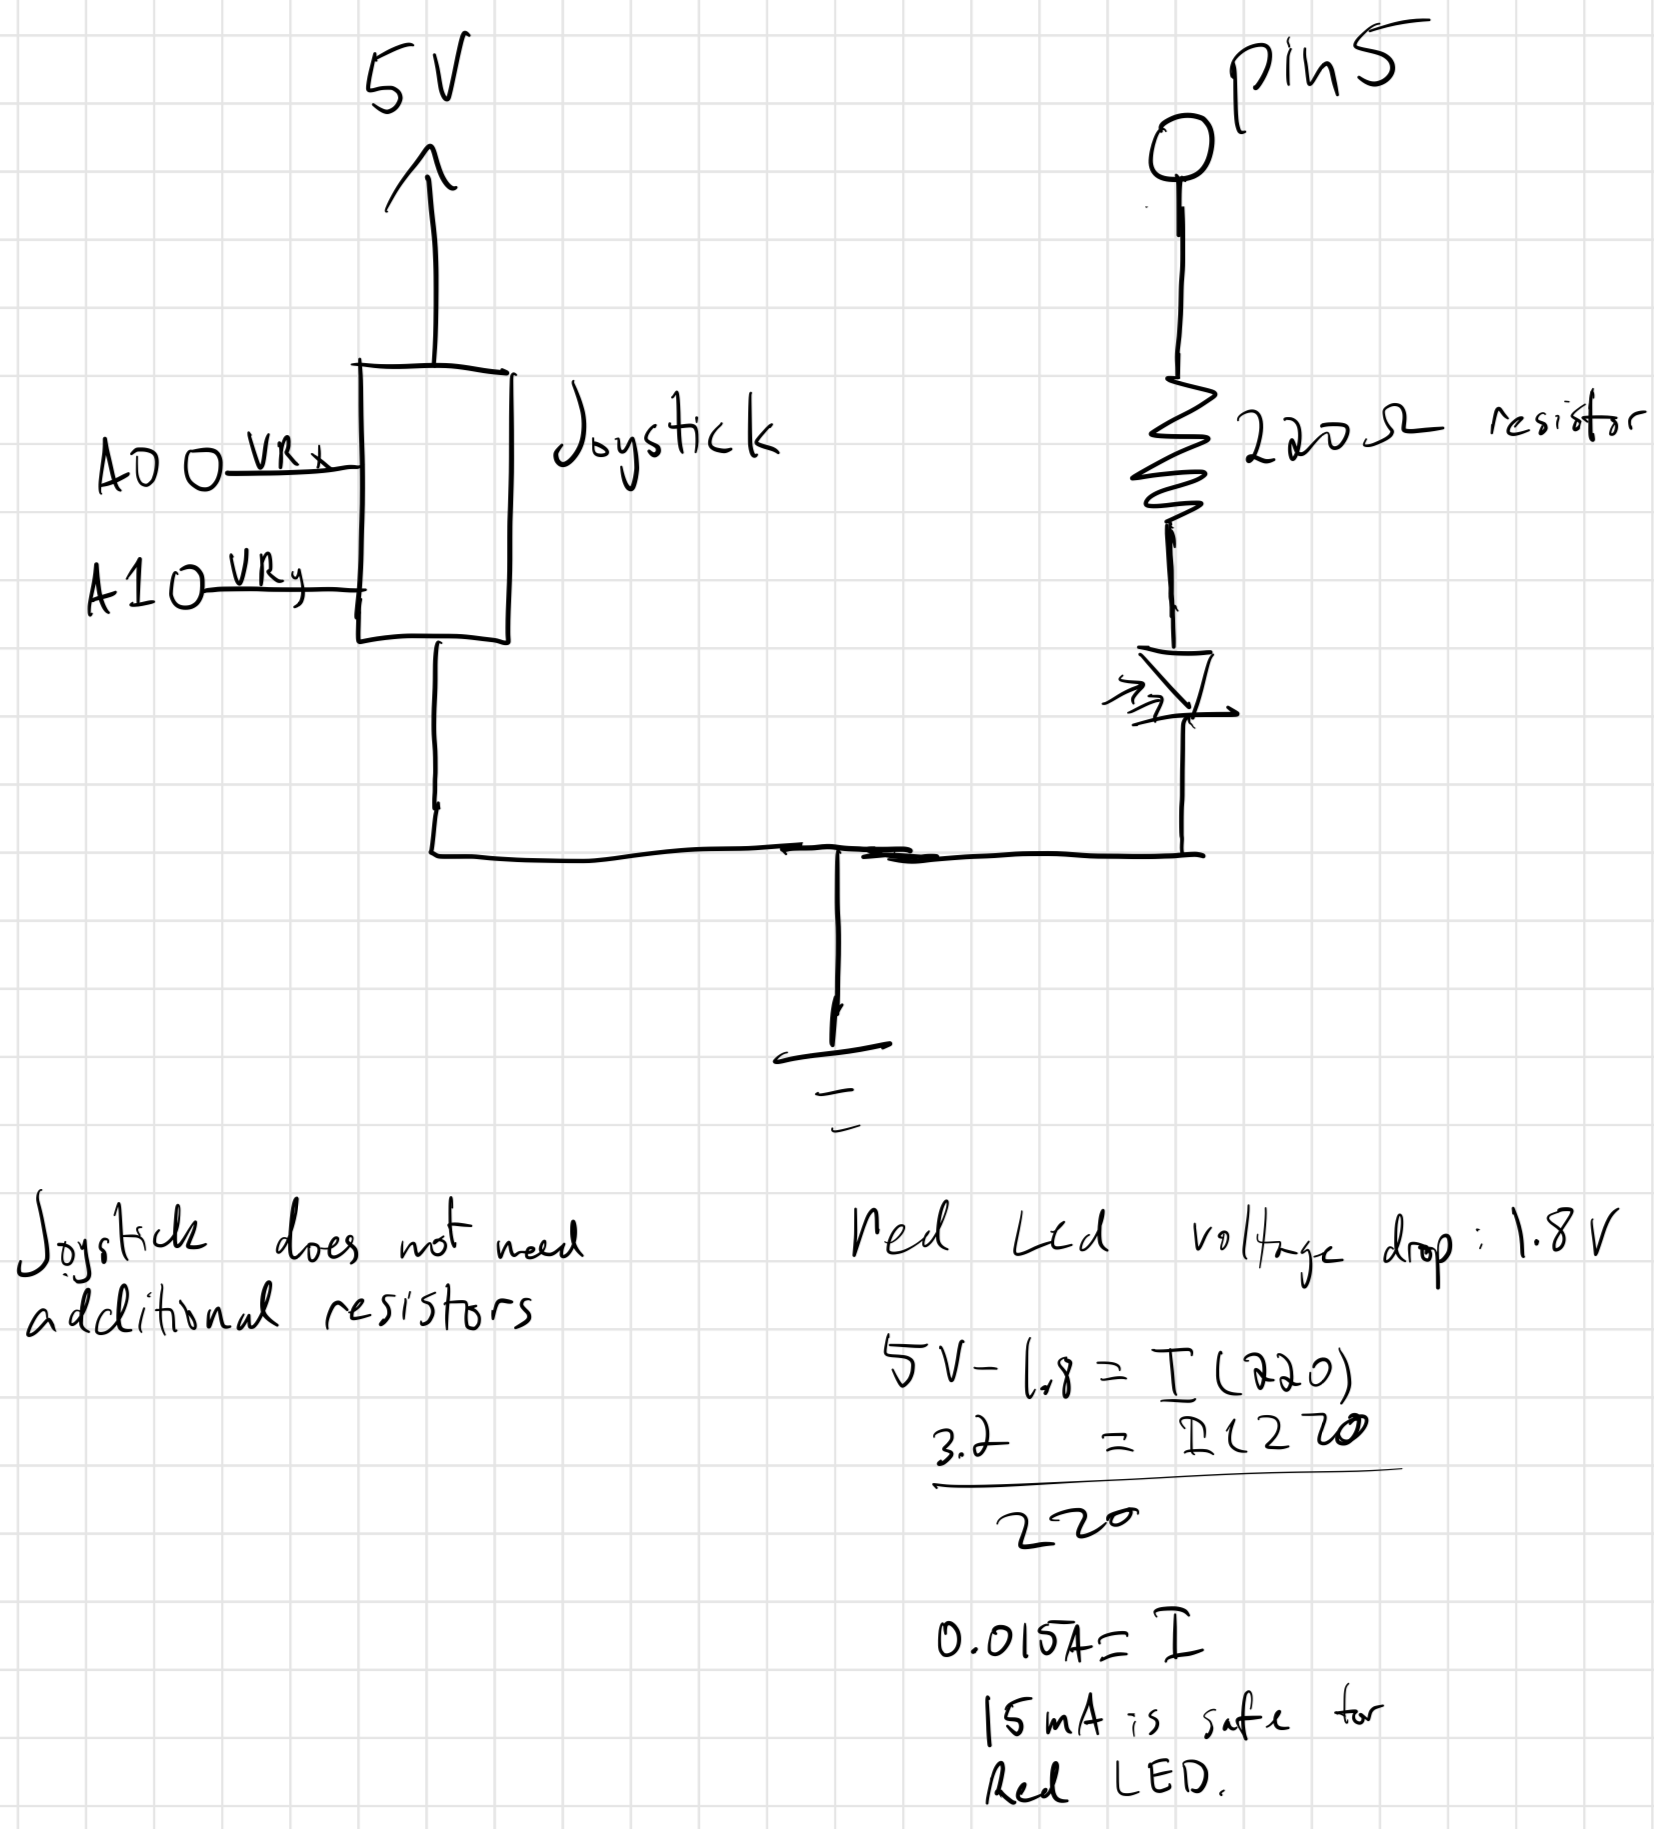 5V
pin5
A0 VRx
Joystick
220Ω resistor
A1 VRy
Joystick does not need
additional resistors
red Led voltage drop: 1.8V
5V-1.8 = I(220)
3.2 = I(220
220
0.015A= I
15mA is safe for
Red LED.